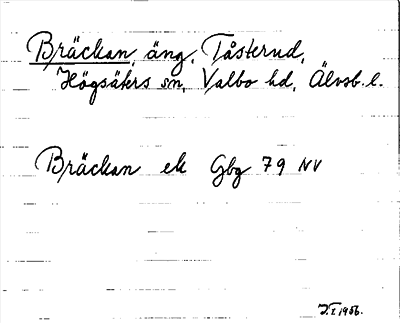 Bräckan, äng, Tåsterud,
Högsäters sn, Valbo hd, Älvsb. l.
Bräckan ek Gbg 79 NV
J.I 1956.